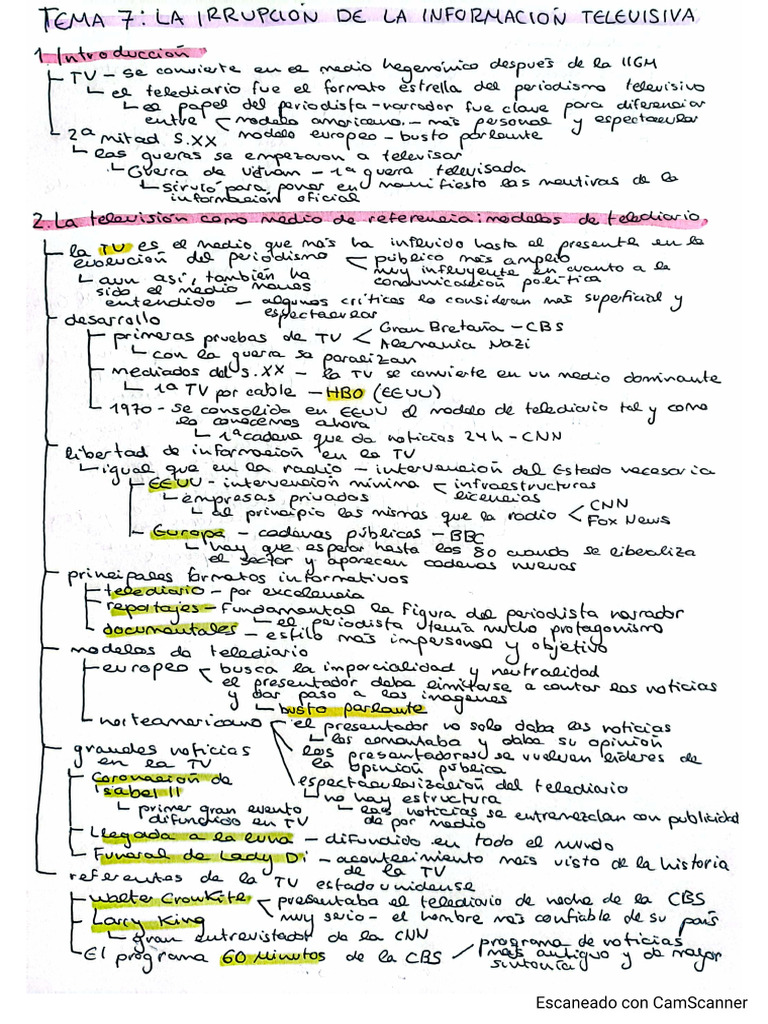 TEMA 7: LA IRRUPCIÓN DE LA INFORMACIÓN TELEVISIVA
1. Introducción
TV - se convierte en el medio hegemónico después de la IIGM
el telediario fue el formato estrella del periodismo televisivo
el papel del periodista-narrador fue clave para diferenciar
entre modelo americano - más personal y espectacular
modelo europeo - busto parlante
2ª mitad S.XX
las guerras se empezaron a televisar
Guerra de Vietnam - 1ª guerra televisada
sirvió para poner en manifiesto las mentiras de la
información oficial
2. La televisión como medio de referencia: modelos de telediario.
la TV es el medio que más ha influido hasta el presente en la
evolución del periodismo < público más amplio
muy influyente en cuanto a la
comunicación política
aun así, también ha
sido el medio menos
entendido - algunos críticos lo consideran más superficial y
espectacular
desarrollo
primeras pruebas de TV < Gran Bretaña - CBS
Alemania Nazi
con la guerra se paralizan
mediados del S.XX - la TV se convierte en un medio dominante
1ª TV por cable - HBO (EEUU)
1970 - se consolida en EEUU el modelo de telediario tal y como
lo conocemos ahora
1ª cadena que da noticias 24h - CNN
libertad de información en la TV
igual que en la radio - intervención del Estado necesaria
EEUU - intervención mínima < infraestructuras
licencias
empresas privadas
al principio las mismas que la radio < CNN
Fox News
Europa - cadenas públicas - BBC
hay que esperar hasta los 80 cuando se liberaliza
el sector y aparecen cadenas nuevas
principales formatos informativos
telediario - por excelencia
reportajes - fundamental la figura del periodista narrador
el periodista tenía mucho protagonismo
documentales - estilo más impersonal y objetivo
modelos de telediario
europeo < busca la imparcialidad y neutralidad
el presentador debe limitarse a contar las noticias
y dar paso a las imágenes
busto parlante
norteamericano < el presentador no solo daba las noticias
las comentaba y daba su opinión
los presentadores se vuelven líderes de
la opinión pública
espectacularización del telediario
no hay estructura
las noticias se entremezclan con publicidad
de por medio
grandes noticias
en la TV
Coronación de
Isabel II
primer gran evento
difundido en TV
Llegada a la luna - difundido en todo el mundo
Funeral de Lady Di - acontecimiento más visto de la historia
de la TV
referentes de la TV estadounidense
Walter Cronkite < presentaba el telediario de noche de la CBS
muy serio - el hombre más confiable de su país
Larry King
gran entrevistador de la CNN
El programa 60 Minutos de la CBS / programa de noticias
más antiguo y de mayor
sintonía
Escaneado con CamScanner